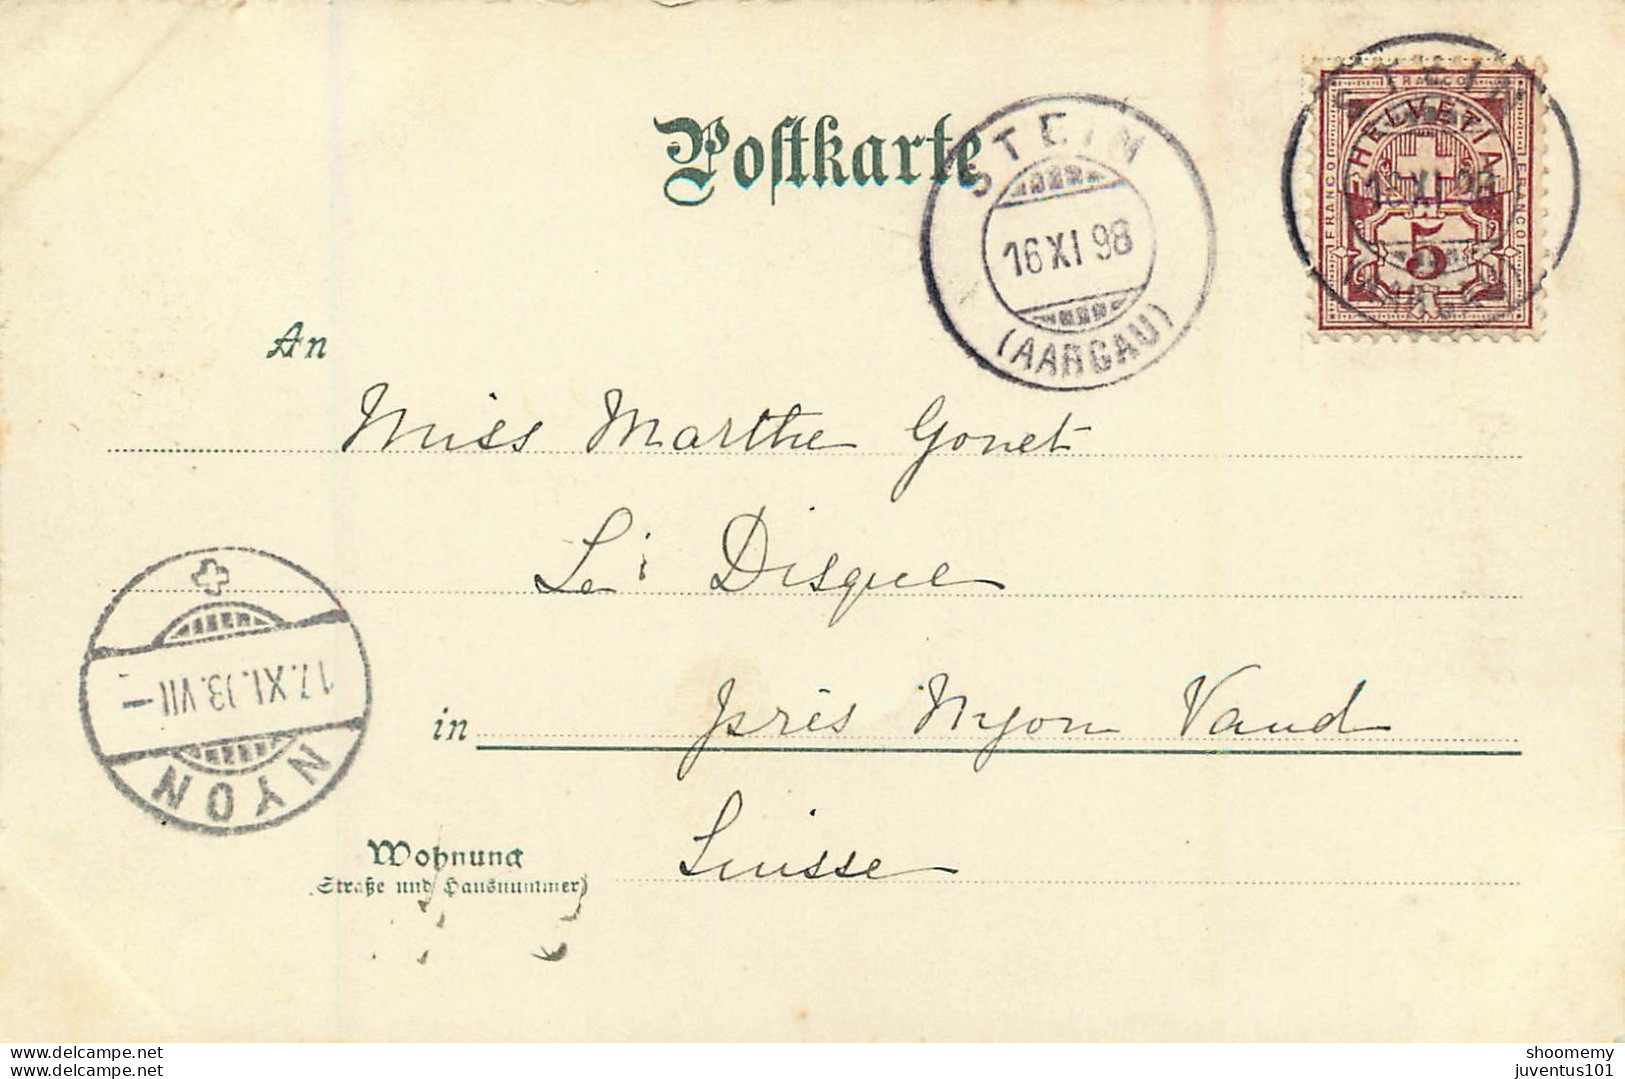 Postkarte
STEIN
16 XI 98
(AARGAU)
STEIN
FRANCO
HELVETIA
FRANCO
FRANCO
XI 98
5
An
Miss Marthe Gonet
Le Disque
17. XI. 93. VII –
NYON
in près Nyon Vaud
Wohnung
(Straße und Hausnummer)
Suisse
www.delcampe.net
www.delcampe.net
shoomemy
juventus101